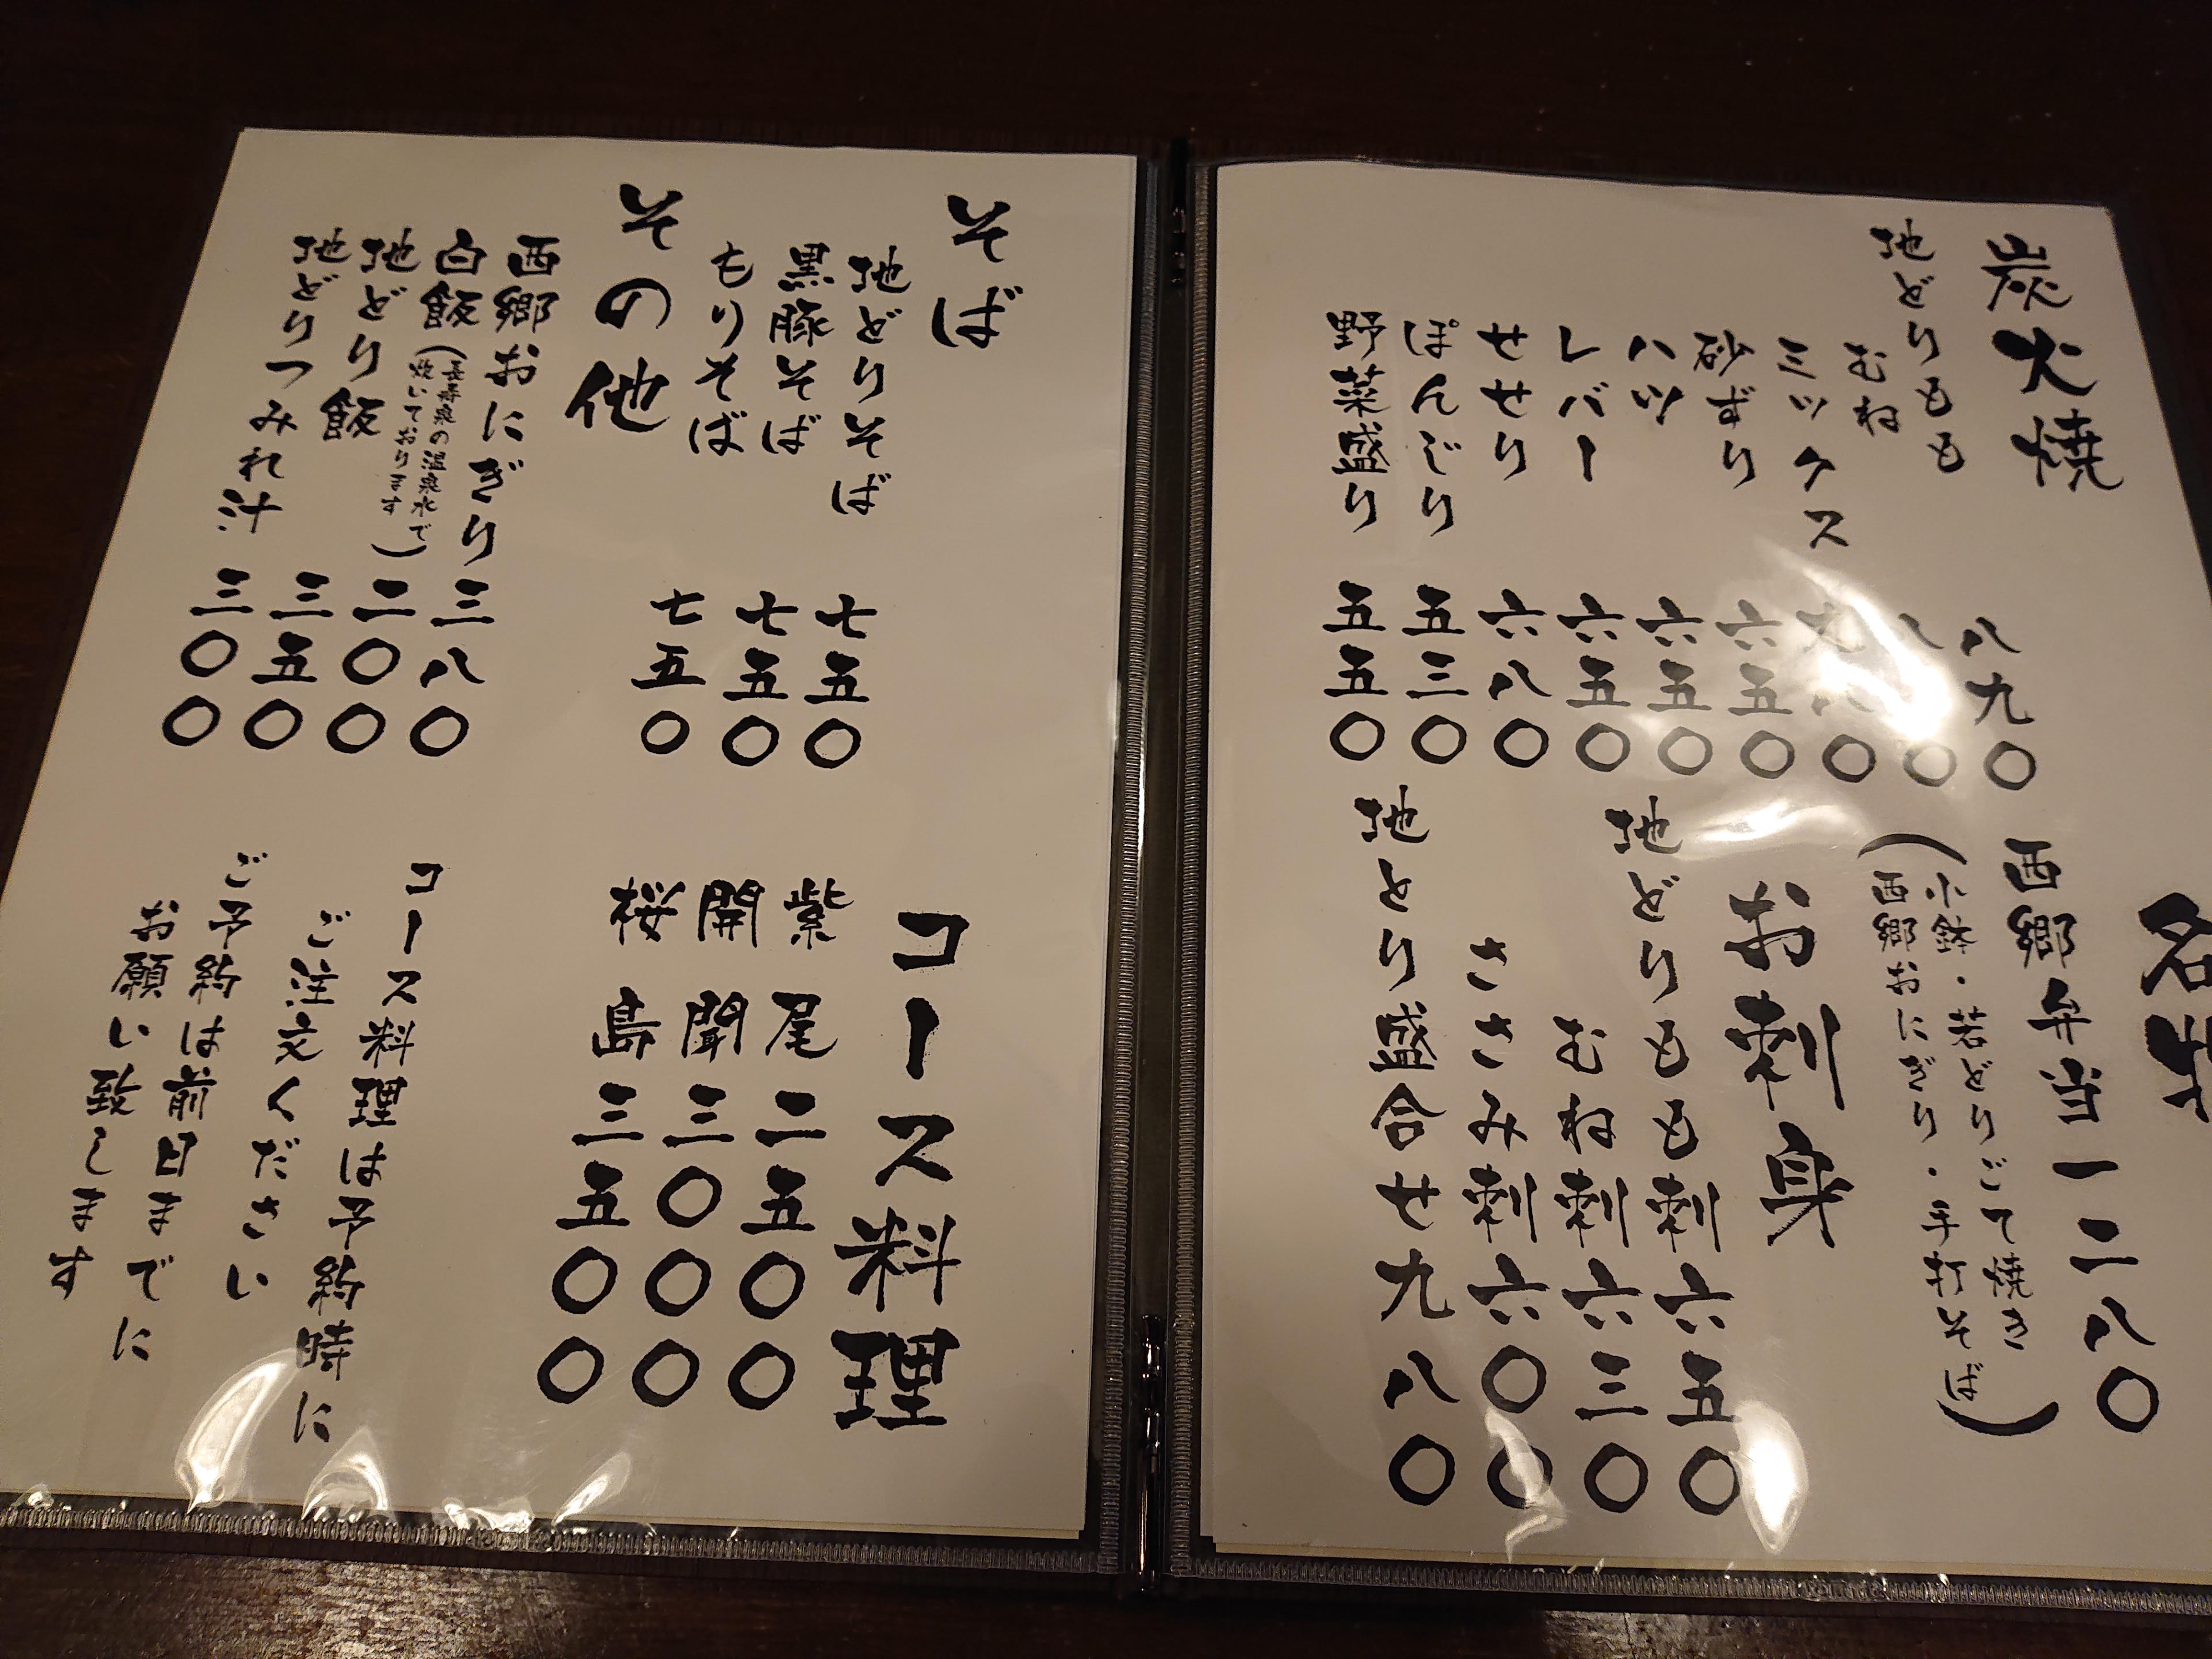 炭火焼
地どりもも 八九〇
むね
ミックス 九八〇
砂ずり 六五〇
ハツ 六五〇
レバー 六五〇
せせり 六八〇
ぽんじり 五三〇
野菜盛り 五五〇
名物
西郷弁当 一二八〇
(小鉢・若どりごて焼き
西郷おにぎり・手打そば)
お刺身
地どりもも刺 六五〇
むね刺 六三〇
ささみ刺 六〇〇
地とり盛合せ 九八〇
そば
地どりそば 七五〇
黒豚そば 七五〇
もりそば 七五〇
その他
西郷おにぎり 三八〇
白飯(長寿泉の温泉水で
炊いております) 二〇〇
地どり飯 三五〇
地どりつみれ汁 三〇〇
コース料理
紫尾 二五〇〇
開聞 三〇〇〇
桜島 三五〇〇
コース料理は予約時に
ご注文ください
ご予約は前日までに
お願い致します